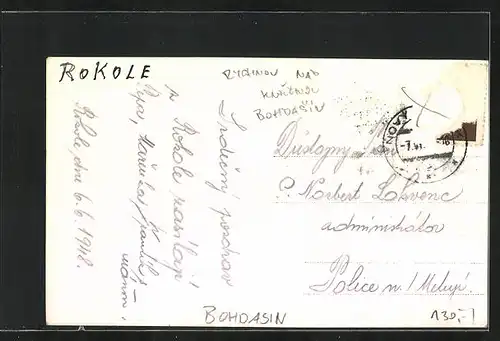 ROKOLE
RYCHNOV NAD
KNĚŽNOU
BOHDAŠÍN
Srdečný pozdrav
z Rokole zasílají
Rokole dne 6.6.1948.
Důstojný pan
P. Norbert
administrátor
Police n./Metují.
BOHDASIN
130,-